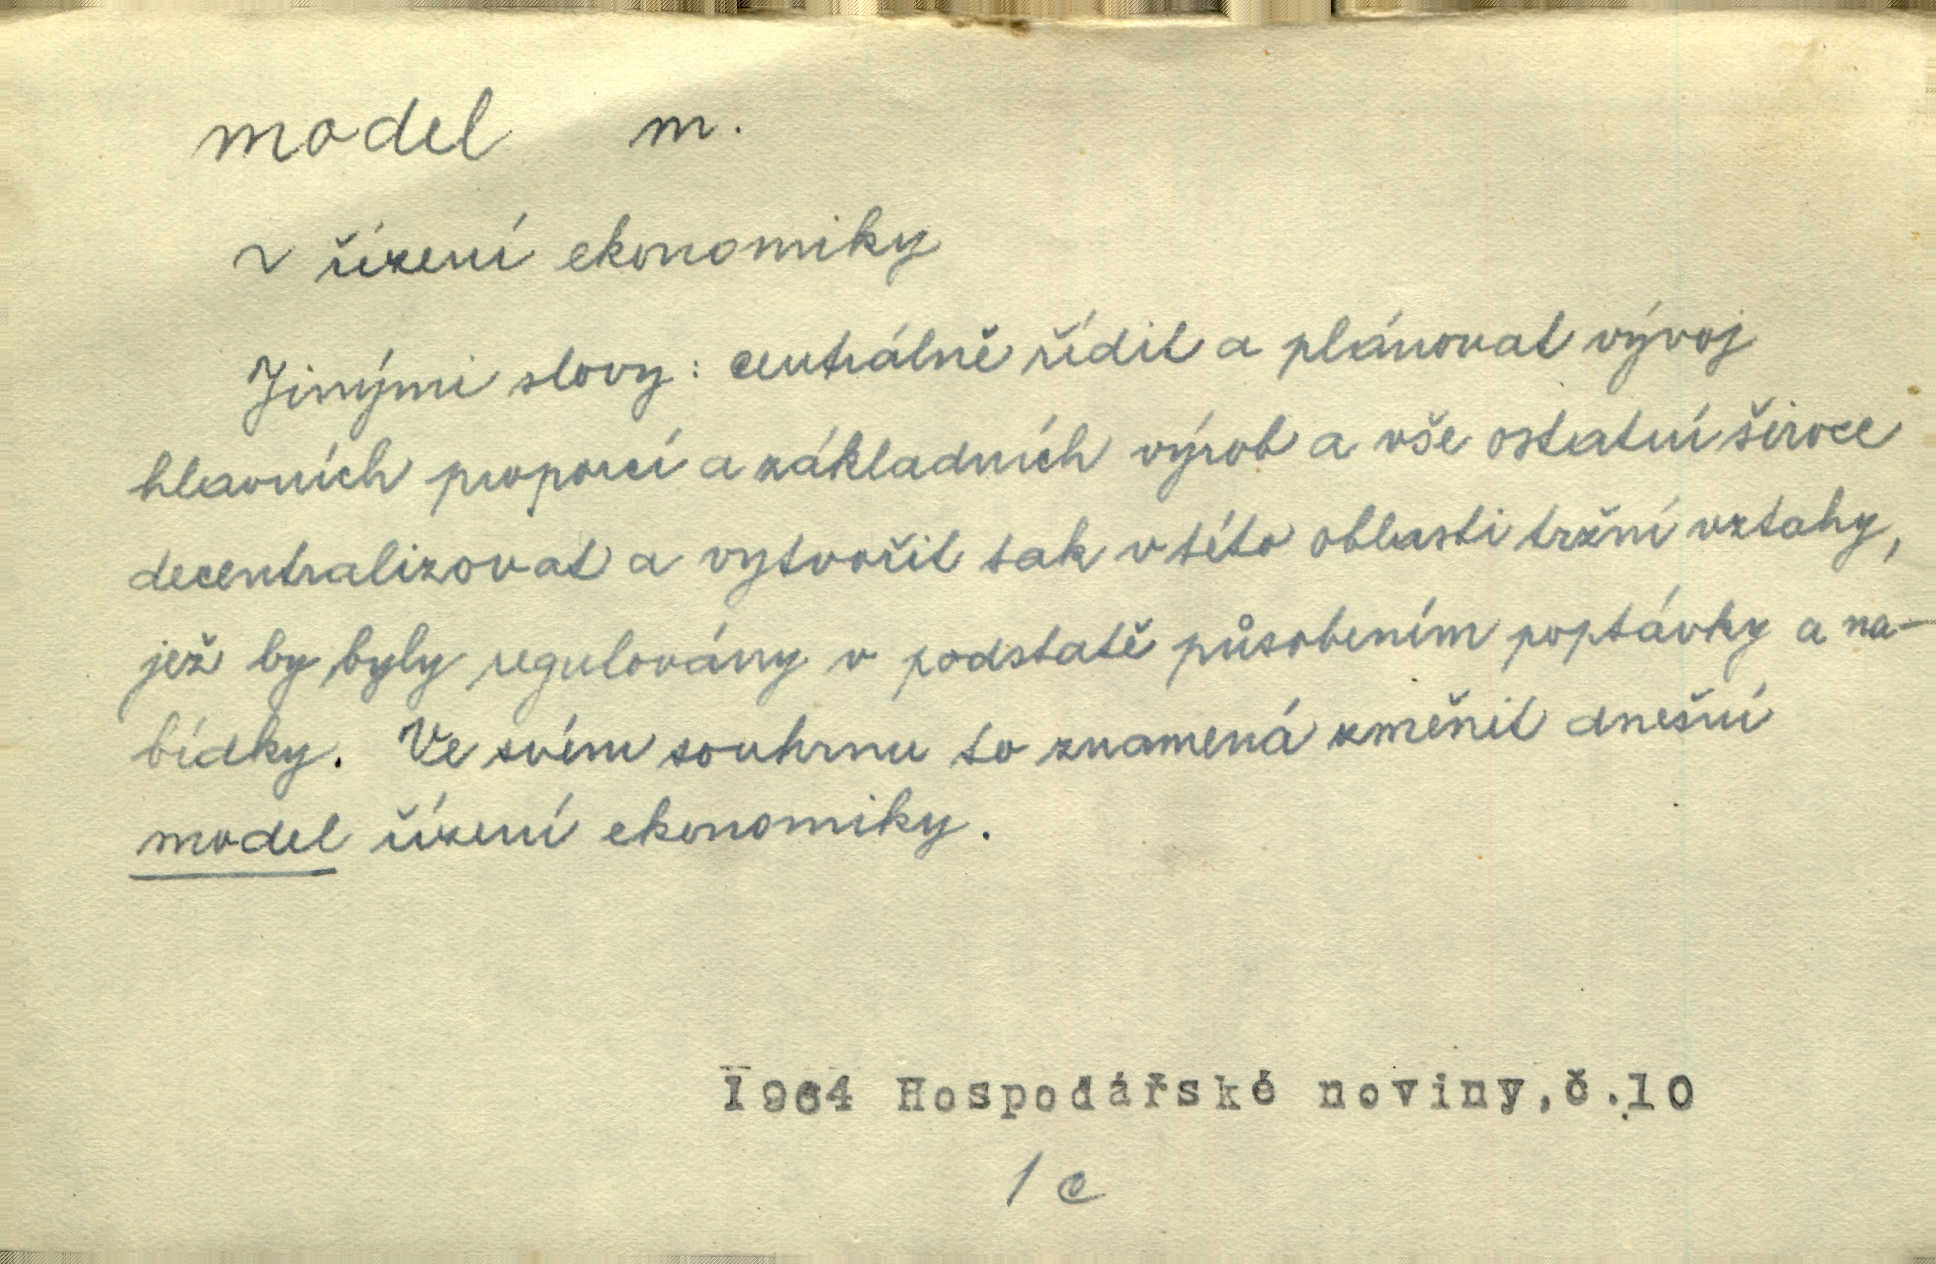 model m.
~ řízení ekonomiky
Jinými slovy: centrálně řídit a plánovat vývoj
hlavních proporcí a základních výrob a vše ostatní široce
decentralizovat a vytvořit tak v této oblasti tržní vztahy,
jež by byly regulovány v podstatě působením poptávky a na-
bídky. Ve svém souhrnu to znamená změnit dnešní
model řízení ekonomiky.
1964 Hospodářské noviny,č.10
1 c